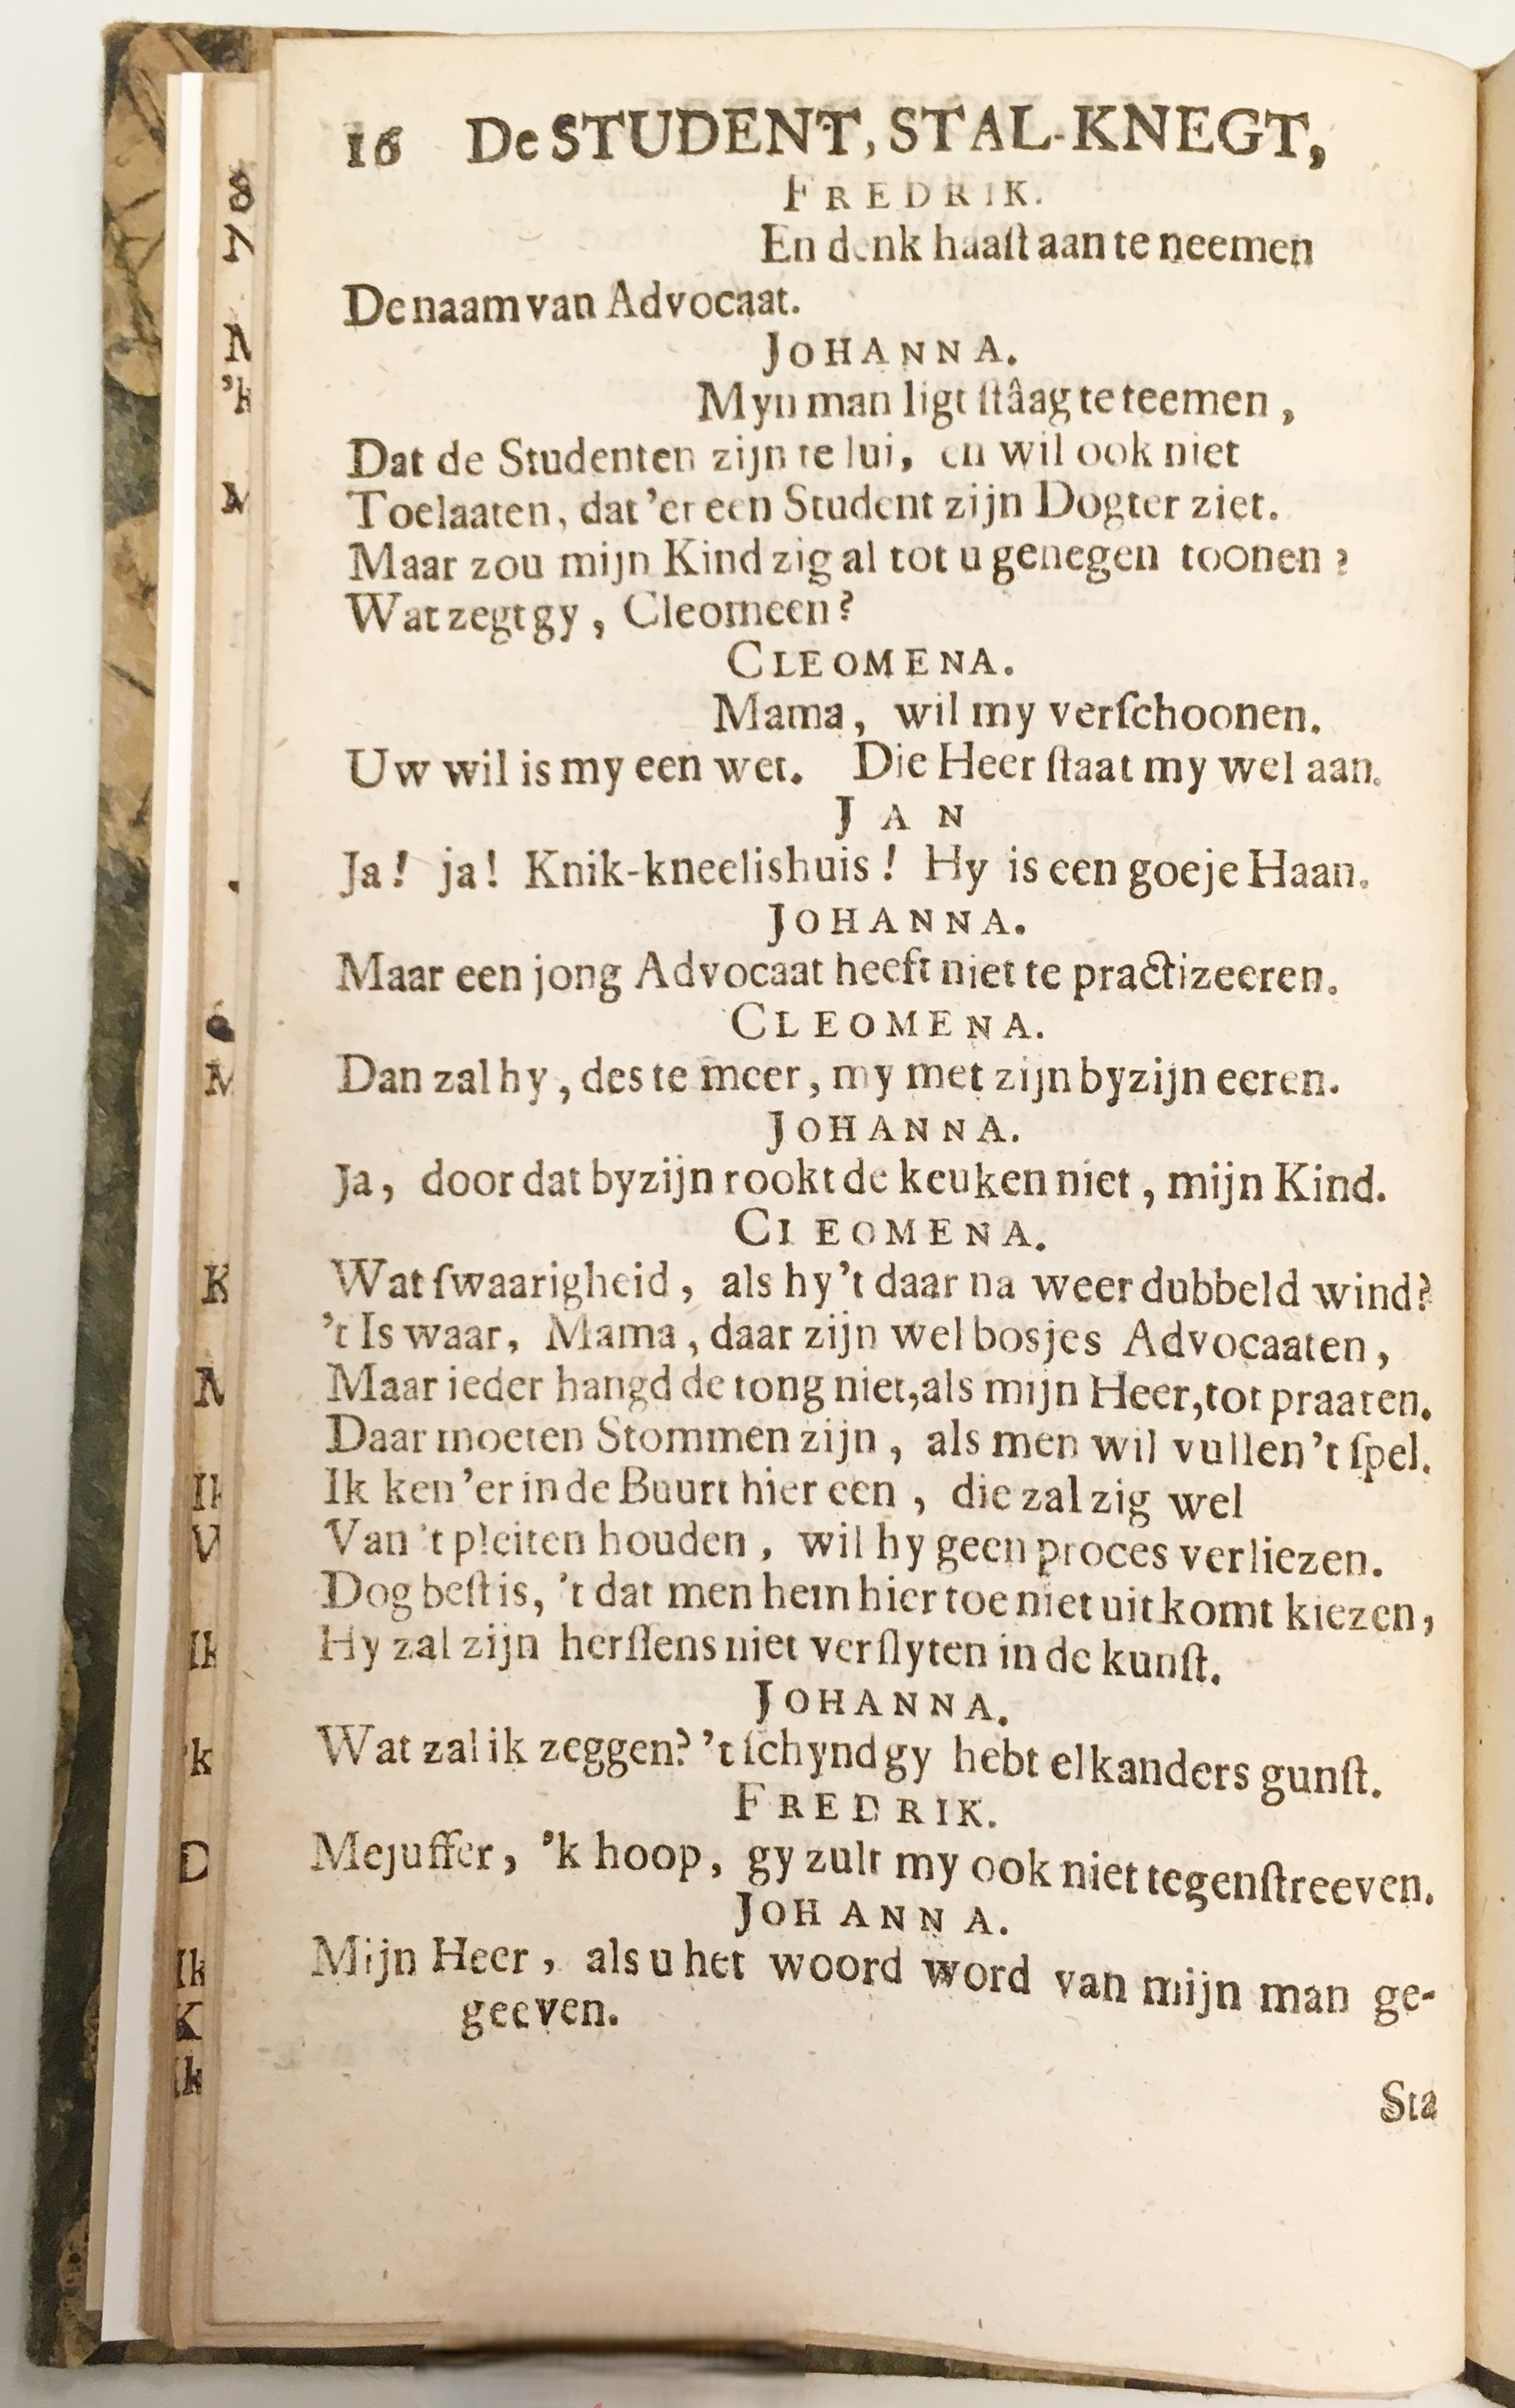 16 De STUDENT, STAL-KNEGT,
FREDRIK.
En denk haaſt aan te neemen
De naam van Advocaat.
JOHANNA.
Myn man ligt ſtâag te teemen,
Dat de Studenten zijn te lui, en wil ook niet
Toelaaten, dat 'er een Student zijn Dogter ziet.
Maar zou mijn Kind zig al tot u genegen toonen?
Wat zegt gy, Cleomeen?
CLEOMENA.
Mama, wil my verſchoonen.
Uw wil is my een wet. Die Heer ſtaat my wel aan.
JAN
Ja! ja! Knik-kneelishuis! Hy is een goeje Haan.
JOHANNA.
Maar een jong Advocaat heeft niet te practizeeren.
CLEOMENA.
Dan zal hy, des te meer, my met zijn byzijn eeren.
JOHANNA.
Ja, door dat byzijn rookt de keuken niet, mijn Kind.
CLEOMENA.
Wat ſwaarigheid, als hy 't daar na weer dubbeld wind?
't Is waar, Mama, daar zijn wel bosjes Advocaaten,
Maar ieder hangd de tong niet, als mijn Heer, tot praaten.
Daar moeten Stommen zijn, als men wil vullen 't ſpel.
Ik ken 'er in de Buurt hier een, die zal zig wel
Van 't pleiten houden, wil hy geen proces verliezen.
Dog beſt is, 't dat men hem hier toe niet uit komt kiezen,
Hy zal zijn herſſens niet verſlyten in de kunſt.
JOHANNA.
Wat zal ik zeggen? 't ſchynd gy hebt elkanders gunſt.
FREDRIK.
Mejuffer, 'k hoop, gy zult my ook niet tegenſtreeven.
JOHANNA.
Mijn Heer, als u het woord word van mijn man ge-
geeven.
Sta